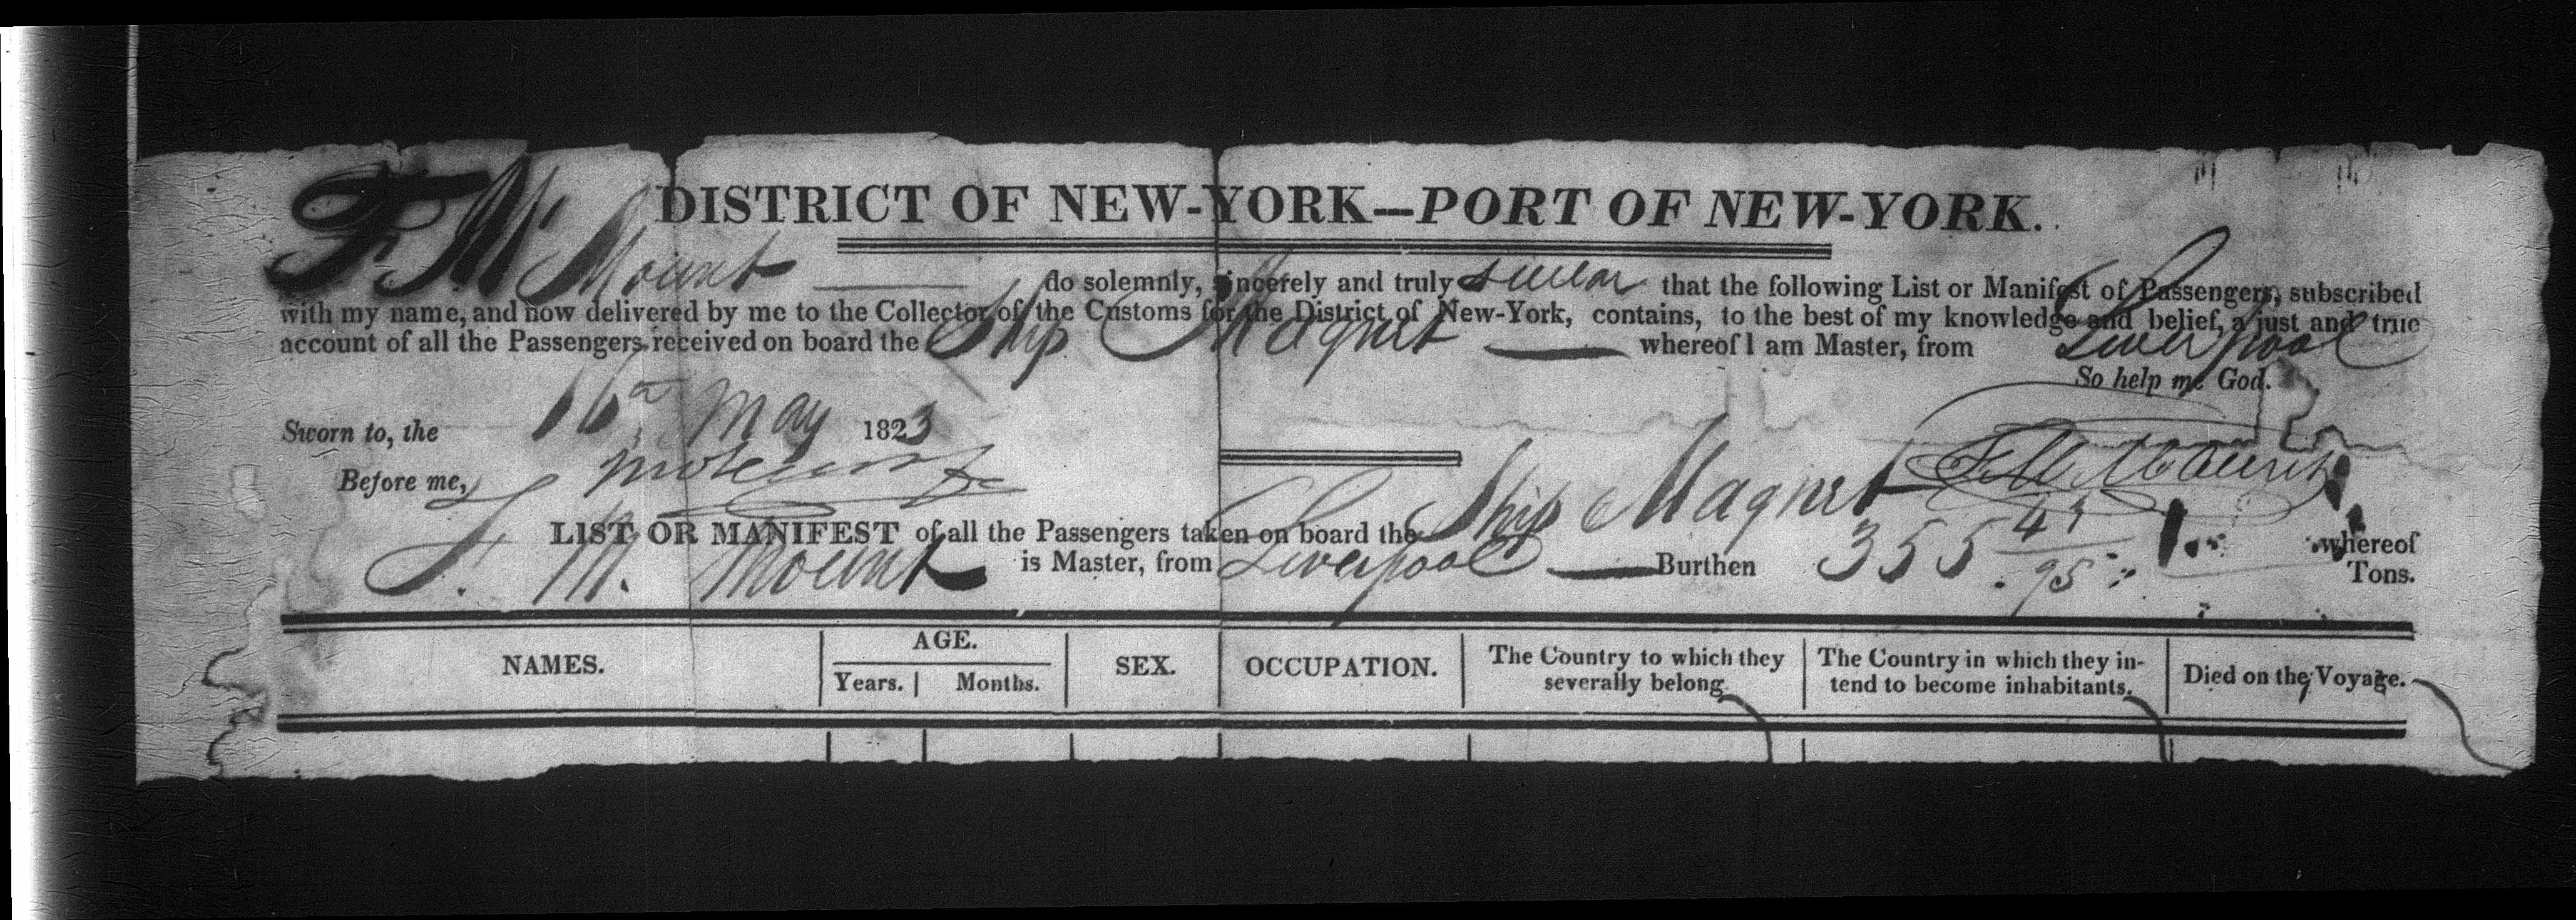 DISTRICT OF NEW-YORK—PORT OF NEW-YORK.
F. M. Mount do solemnly, sincerely and truly swear that the following List or Manifest of Passengers, subscribed
with my name, and now delivered by me to the Collector of the Customs for the District of New-York, contains, to the best of my knowledge and belief, a just and true
account of all the Passengers received on board the Ship Magnet whereof I am Master, from Liverpool
So help me God.
Sworn to, the 16 May 1823
Before me,
F. M. Mount
LIST OR MANIFEST of all the Passengers taken on board the Ship Magnet whereof
F. M. Mount is Master, from Liverpool Burthen 355 /95 Tons.
NAMES. AGE. SEX. OCCUPATION. The Country to which they severally belong. The Country in which they in-
tend to become inhabitants. Died on the Voyage.
Years. Months.